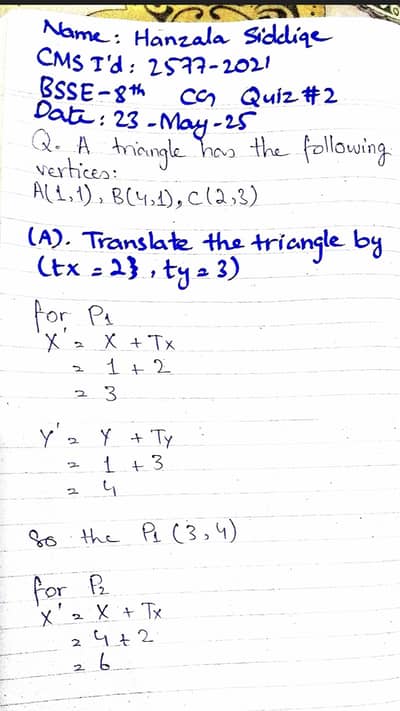 Name: Hanzala Siddiqe
CMS I'd: 2577-2021
BSSE-8th CG Quiz #2
Date: 23-May-25
Q. A triangle has the following
vertices:
A(1,1), B(4,1), C(2,3)
(A). Translate the triangle by
(tx = 2}, ty = 3)
for P1
X' = X + Tx
= 1 + 2
= 3
Y' = Y + Ty
= 1 + 3
= 4
So the P1 (3,4)
for P2
X' = X + Tx
= 4 + 2
= 6